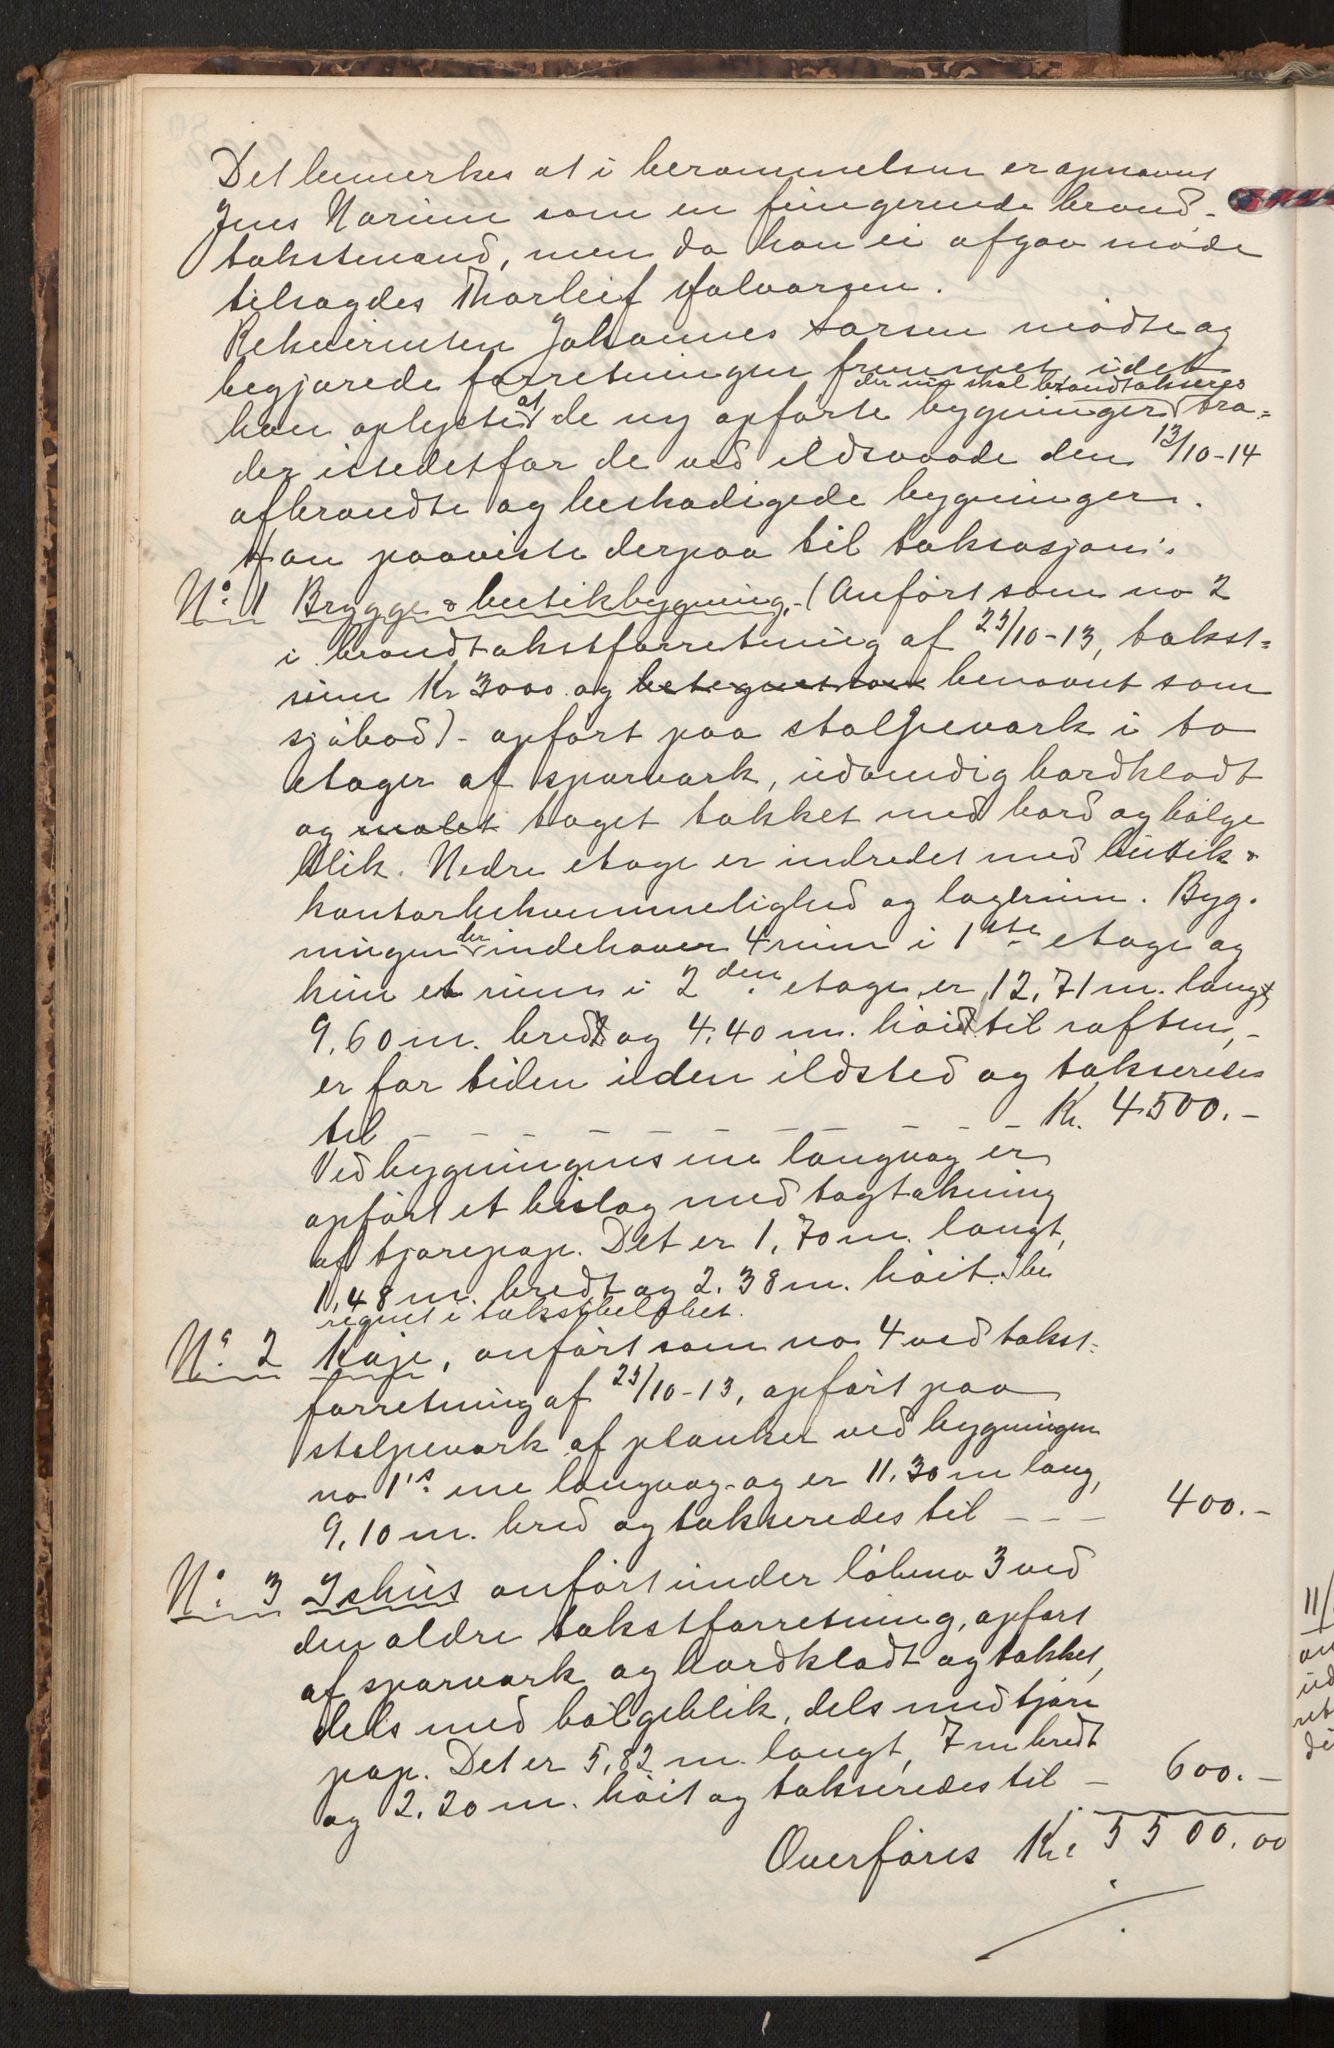 Det bemerkes at i berammelsen er opnævnt
Jens Narum som en fungerende brand-
takstmand, men da han ei afgav møde
tilsagdes Thorleif Halvorsen.
Rekvirenten Johannes Larsen mødte og
begjærede forretningen fremmet idet
der nu skal brandtakseres
han oplyste at de ny opførte bygninger træ-
der istedetfor de ved ildsvaade den 13/10-14
afbrændte og beskadigede bygninger.
Han paaviste derpaa til taksasjon:
No. 1 Brygge & butikbygning,- (Anført som no 2
i brandtakstforretning af 23/10-13, takst-
sum Kr 3000 og betegnet som benævnt som
sjøbod) - opført paa stolpeværk i to
etager af sperværk, udvendig bordklædt
og malet taget tækket med bord og bølge
blik. Nedre etage er indredet med butik &
kontorbekvemmelighed og lagerrum. Byg-
ningen der indehaver 4 rum i 1ste etage og
kun et rum i 2den etage er 12,71 m. langt,
9,60 m. bred og 4,40 m. høi til raften, -
er for tiden uden ildsted og takseredes
til — — — — — — — — — Kr. 4500.-
Ved bygningens ene langvæg er
opført et bislag med tagtækning
af tjærepap. Det er 1,70 m. langt,
1,48 m. bredt og 2,38 m. høit. Be
regnet i takstbeløbet.
No. 2 Kaje, anført som no 4 ved takst-
forretning af 23/10-13, opført paa
stolpeværk af planker ved bygningen
no 1's ene langvæg - og er 11,30 m lang,
9,10 m. bred og takseredes til — — — 400.-
No. 3 Ishus anført under løbeno 3 ved
den ældre takstforretning, opført
af sperværk og bordklædt og tækket,
dels med bølgeblik, dels med tjære
pap. Det er 5,82 m. langt, 7 m bredt
og 2,20 m. høit og takseredes til — 600.-
Overføres Kr. 5500.00